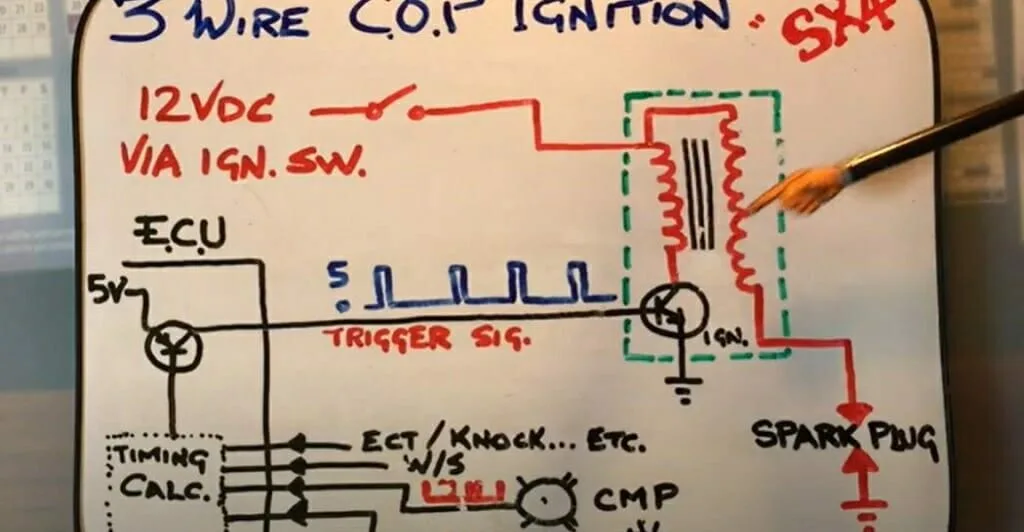 3 WIRE C.O.P IGNITION
12VDC
VIA IGN. SW.
E.C.U
5V
5
0
TRIGGER SIG.
IGN.
SPARK PLUG
TIMING
CALC.
ECT/KNOCK... ETC.
W/S
CMP